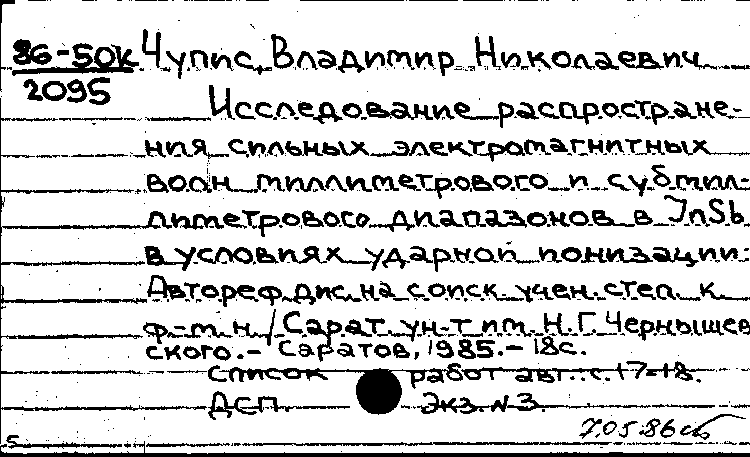 86-50К Чупис, Владимир Николаевич
2095
Исследование распростране-
ния сильных электромагнитных
волн миллиметрового и субмил-
лиметрового диапазонов в InSb
в условиях ударной ионизации:
Автореф. дис. на соиск. учен. степ. к.
ф.-м. н. / Сарат. ун-т им. Н. Г. Чернышев
ского. - Саратов, 1985. - 18с.
Список работ авт.: с. 17-18.
ДСП. Экз. N 3.
7.05.86
5